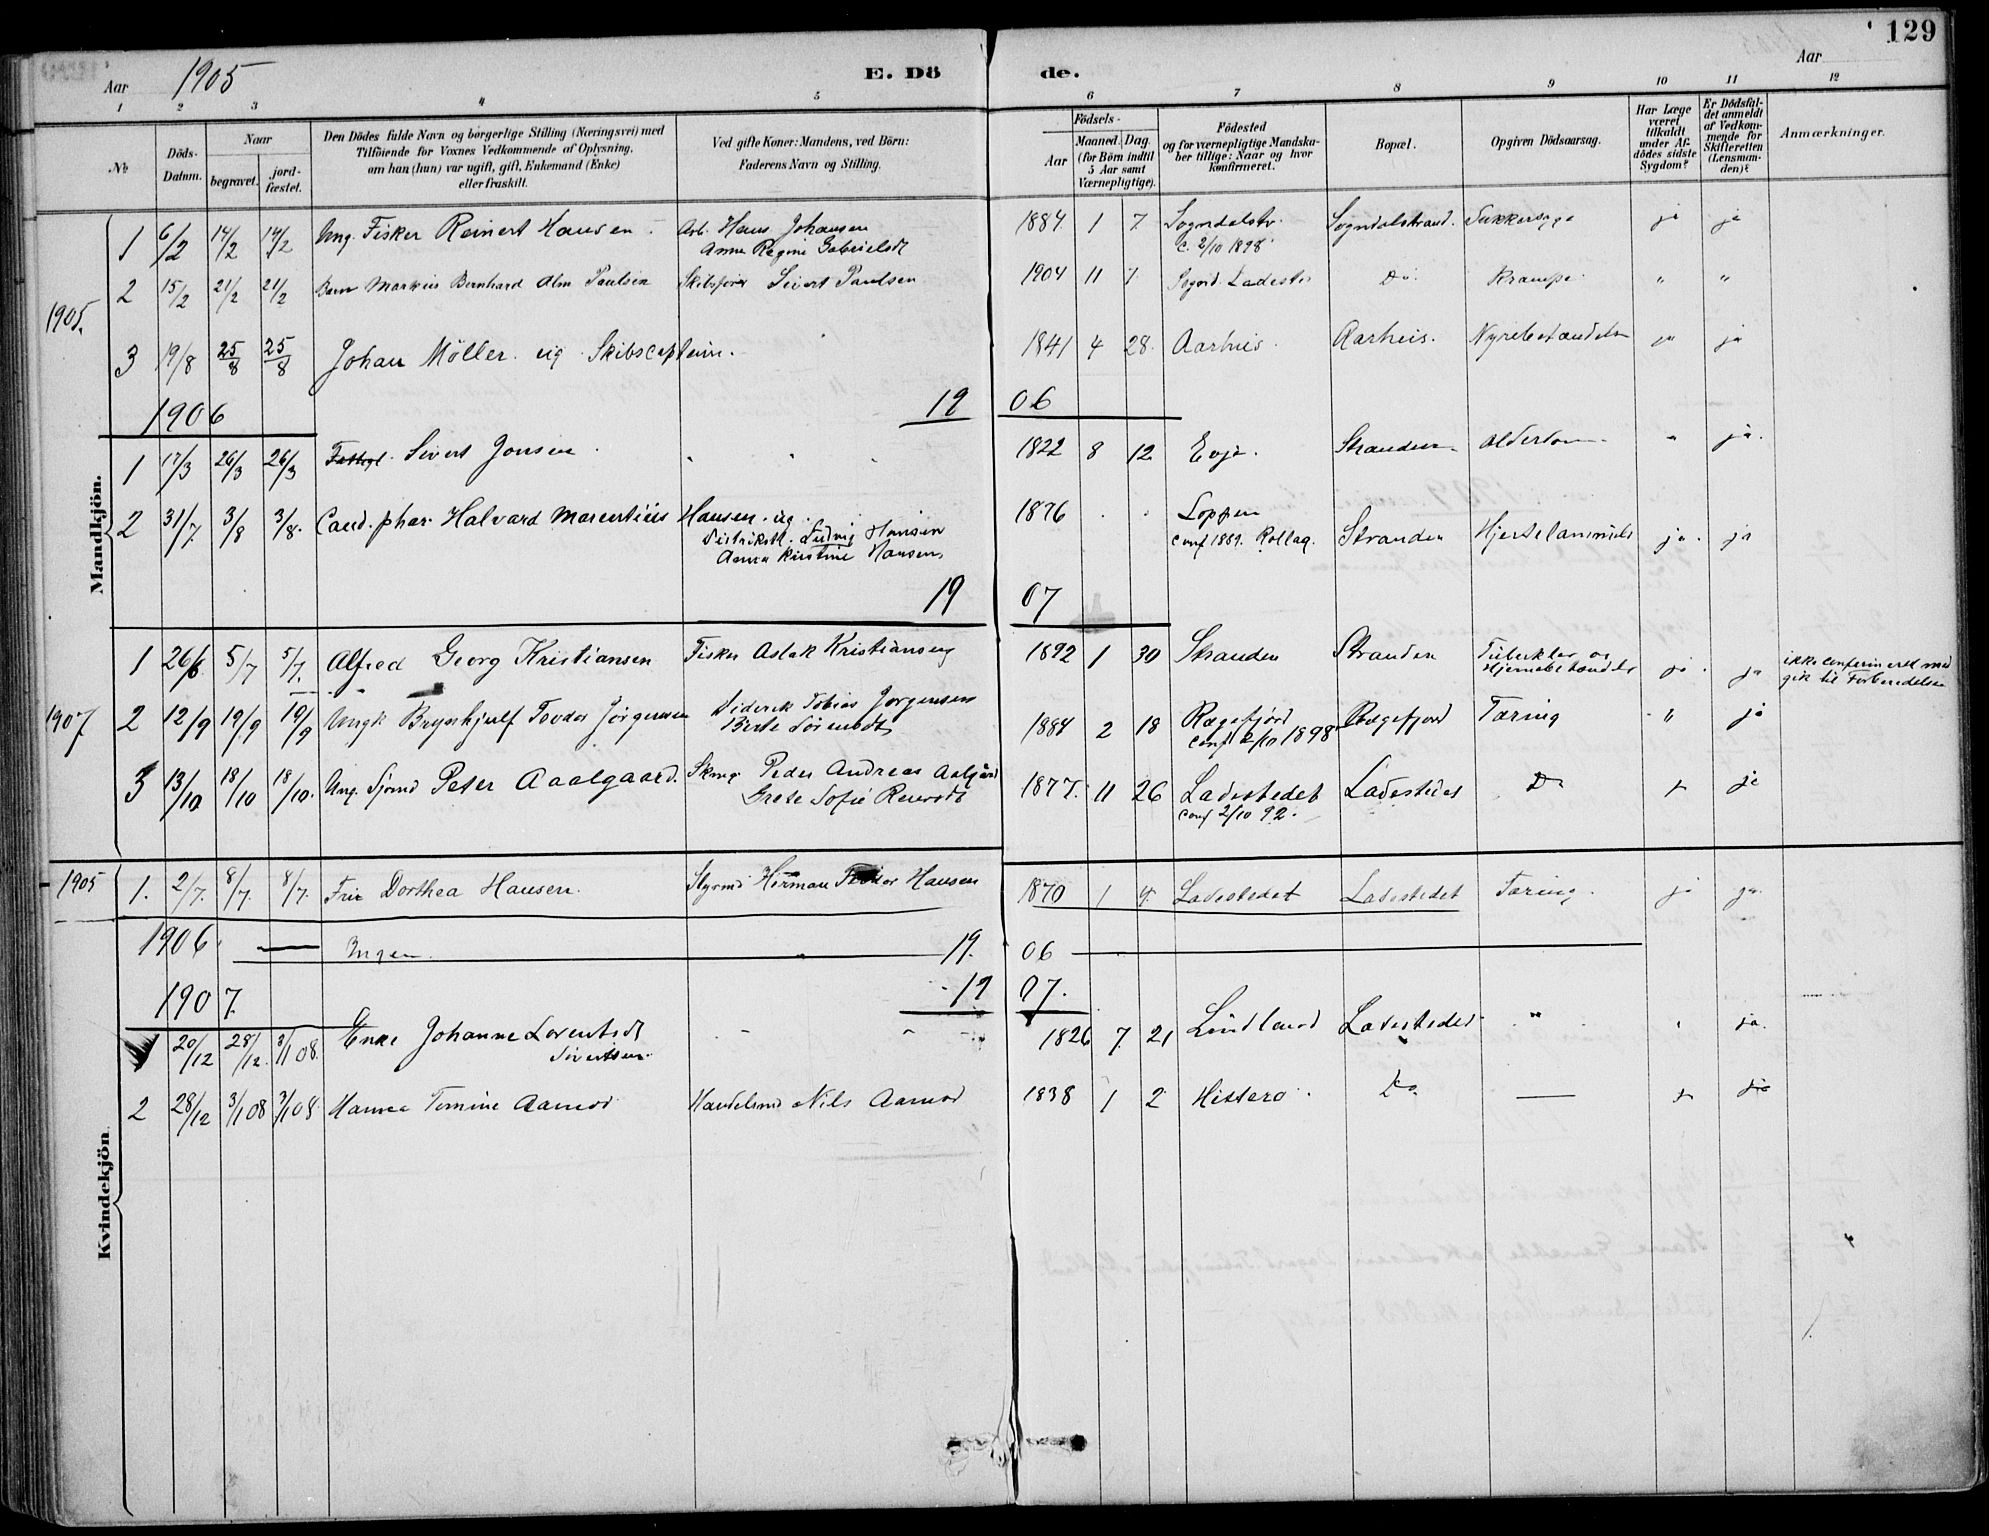 129
Aar 1905
E. Dö de.
Aar
1 2 3 4 5 6 7 8 9 10 11 12
No.
Döds-Datum.
Naar
begravet.
jord-fæstet.
Den Dödes fulde Navn og borgerlige Stilling (Næringsvei) med
Tilföiende for Voxnes Vedkommende af Oplysning,
om han (hun) var ugift, gift, Enkemand (Enke)
eller fraskilt.
Ved gifte Koner: Mandens, ved Börn:
Faderens Navn og Stilling.
Födsels-
Aar
Maaned. Dag.
(for Börn indtil
5 Aar samt
Værnepligtige).
Födested
og for værnepligtige Mandska-
ber tillige: Naar og hvor
konfirmeret.
Bopæl.
Opgiven Dödsaarsag.
Har Læge
været
tilkaldt
under Af-
dödes sidste
Sygdom?
Er Dödsfal-
det anmeldt
af Vedkom-
mende for
Skifteretten
(Lensman-
den)?
Anmærkninger.
Mandkjön.
1905.
1 6/2 14/2 14/2 Ung. Fisker Reinert Hansen Arb. Hans Johansen 1884 1 7 Sogndalstr. Sogndalstrand. Sukkersyge ja ja
Anna Regine Gabrielsdt c. 2/10 1898
2 15/2 21/2 21/2 Barn Markus Bernhard Alm Paulsen Skibsfører Sivert Paulsen 1904 11 7 Sognd. Ladested Do. Krampe " "
3 19/8 25/8 25/8 Johan Möller. ug. Skibscaptein. 1841 4 28. Aarhus. Aarhuis. Nyrebetændelse ja ja
1906 19 06
1 17/3 26/3 26/3 Sivert Jonsen 1822 8 12 Evje. Stranden Alderdom " ja.
2 31/7. 3/8 3/8. Cand. phar. Halvard Marentius Hansen. ug. 1876 Loppen Stranden Hjertelammelse ja. ja
Distriktl. Ludvig Hansen conf 1889. Rollag.
Anna Kirstine Hansen
19 07
1907
1 26/6 5/7 5/7. Alfred Georg Kristiansen Fisker Aslak Kristiansen 1892 1 30 Stranden Stranden Tuberkler og ja ja ikke confirmeret med
Hjernebetændelse gik til Forberedelse
2 12/9 19/9 19/9 Ungk Brynhjulf Tordor Jörgensen Diderik Tobias Jörgensen 1884 2 18 Rægefjörd Rægefjord Tæring " ja
Berte Sörensdt conf 2/10 1898
3 13/10 18/10 18/10. Ung. Sjömd Peter Aaalgaard. Peder Andreas Aalgård 1877. 11 26 Ladestedet Ladestedet Do ja
Grete Sofie conf 2/10 92.
Kvindekjön
1905 1. 2/7. 8/7. 8/7. Fru Dorthea Hansen. Styrmd Herman Teodor Hansen 1870 1 4. Ladestedet Ladestedet Tæring. ja ja.
1906 — Ingen. 19. 06
1907. 19 07.
1 20/12 28/12. 3/1 08. Enke Johanne Lorentsdt 1826 7. 21 Lindland Ladestedet " ja.
Sivertsen.
2 28/12 3/1 08 3/1 08. Hanna Tomine Aamod Handelsmd Nils Aamod 1838 1 2 Hitterø. Do — ja